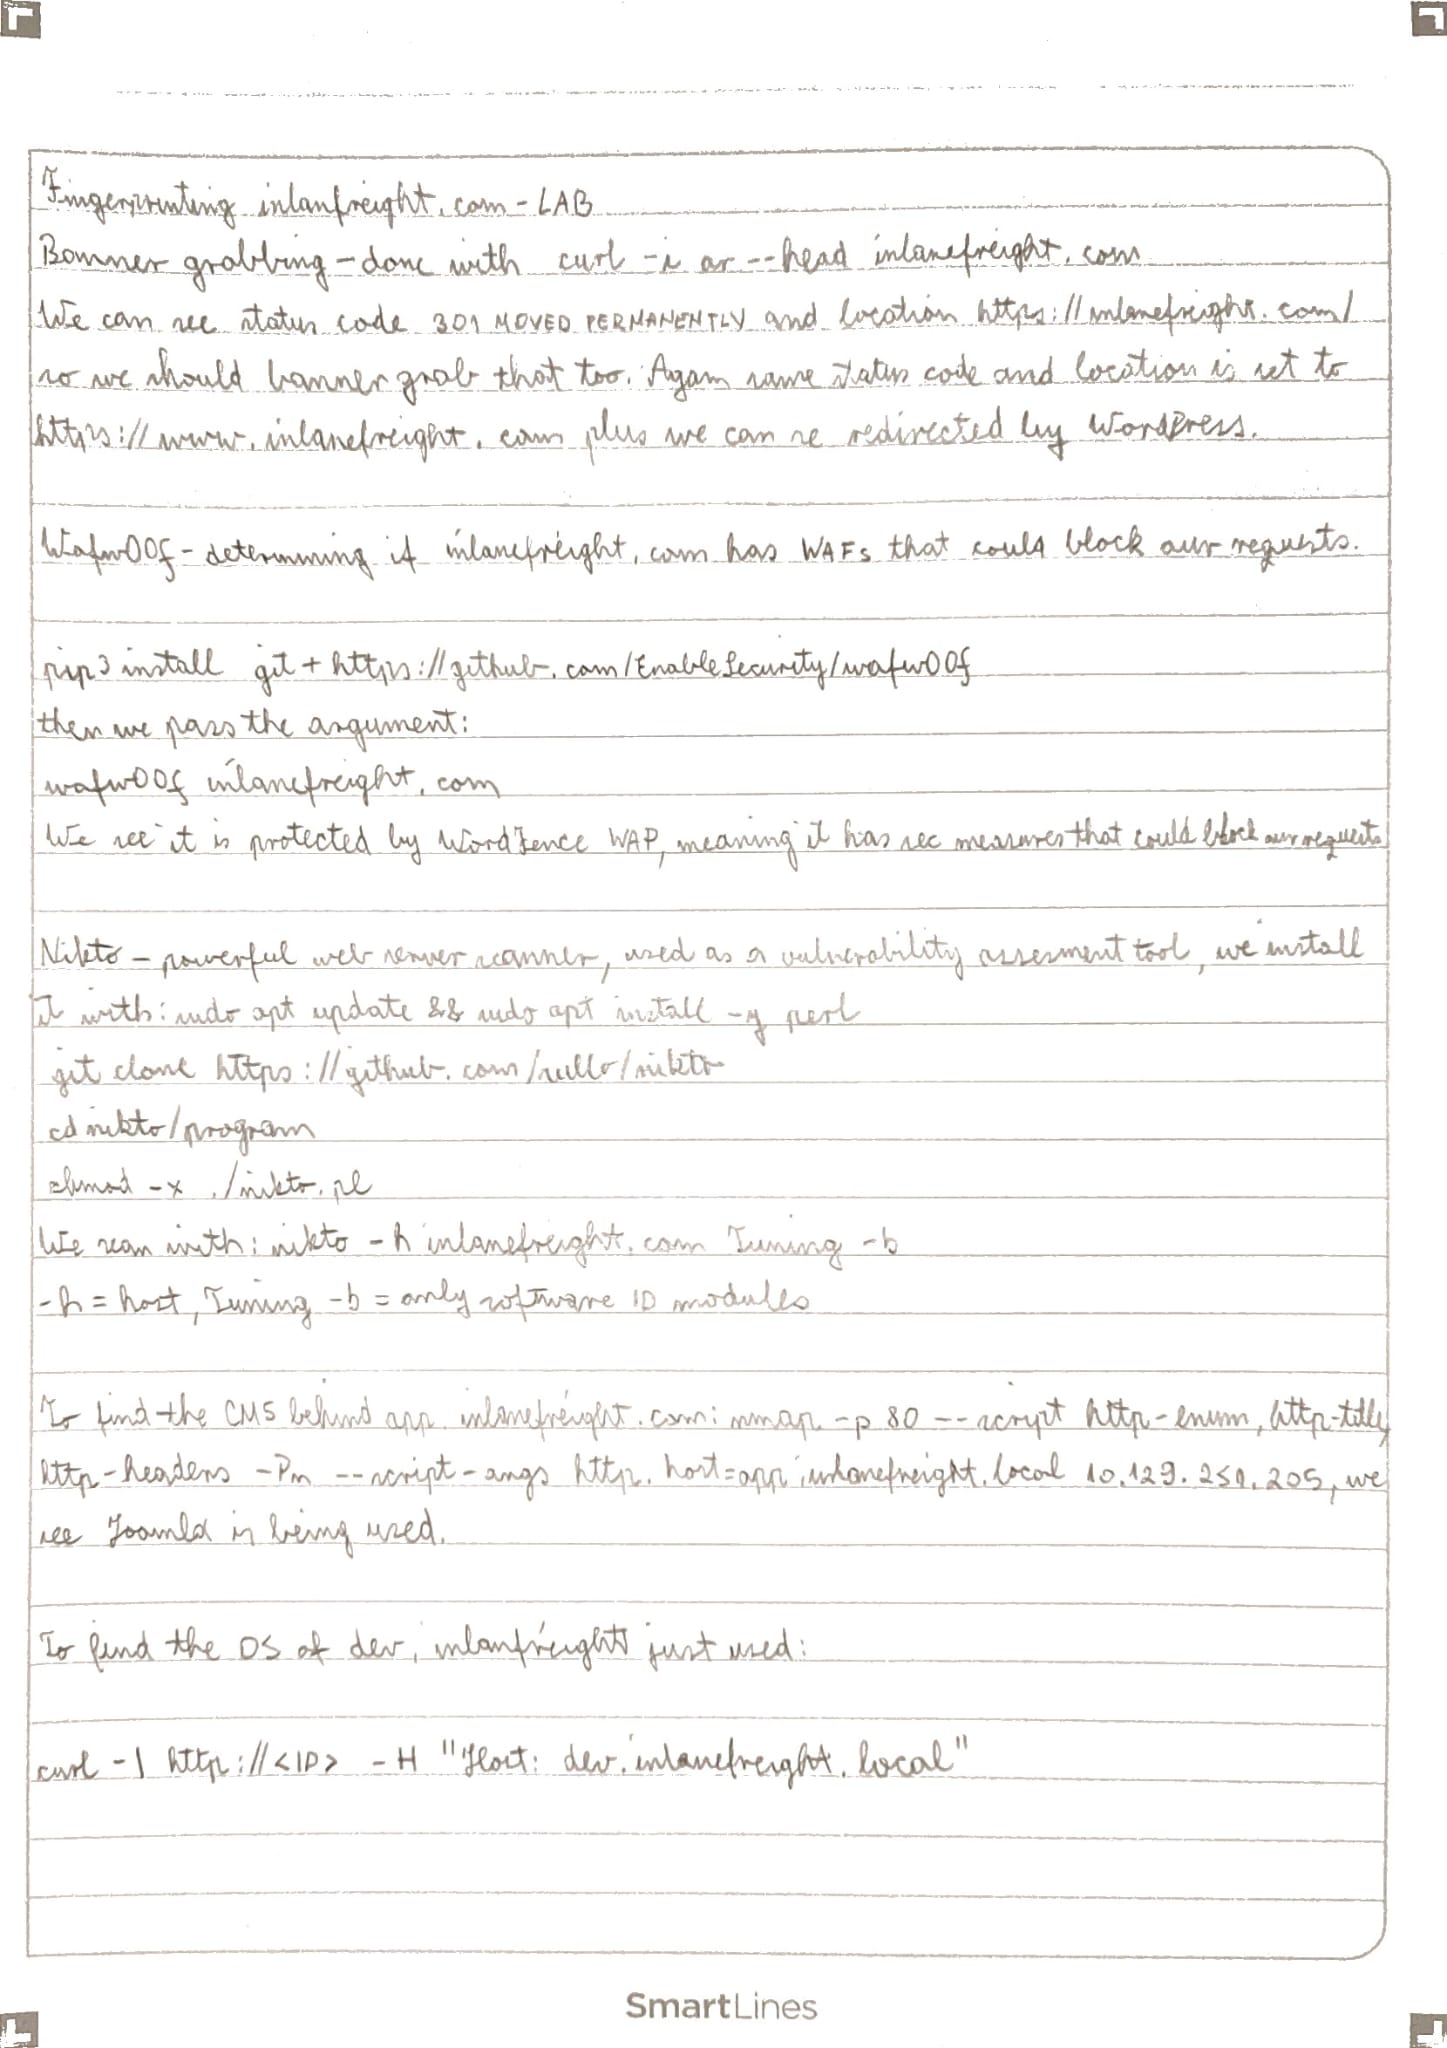 Fingerprinting inlanfreight.com - LAB
Banner grabbing - done with curl -i or --head inlanefreight.com
We can see status code 301 MOVED PERMANENTLY and location https://inlanefreight.com/
so we should banner grab that too. Again same status code and location is set to
https://www.inlanefreight.com plus we can se redirected by WordPress.
Wafw00f - determining if inlanefreight.com has WAFs that could block our requests.
pip3 install git+https://github.com/EnableSecurity/wafw00f
then we pass the argument:
wafw00f inlanefreight.com
We see it is protected by Wordfence WAP, meaning it has sec measures that could block our requests
Nikto - powerful web server scanner, used as a vulnerability assesment tool, we install
it with: sudo apt update && sudo apt install -y perl
git clone https://github.com/sullo/nikto
cd nikto/program
chmod -x ./nikto.pl
We scan with: nikto -h inlanefreight.com Tuning -b
-h = host, Tuning -b = only software ID modules
To find the CMS behind app.inlanefreight.com: nmap -p 80 --script http-enum, http-title,
http-headers -Pn --script-args http.host=app.inlanefreight.local 10.129.251.205, we
see Joomla is being used.
To find the OS of dev.inlanfreight just used:
curl -I http://<IP> -H "Host: dev.inlanefreight.local"
SmartLines